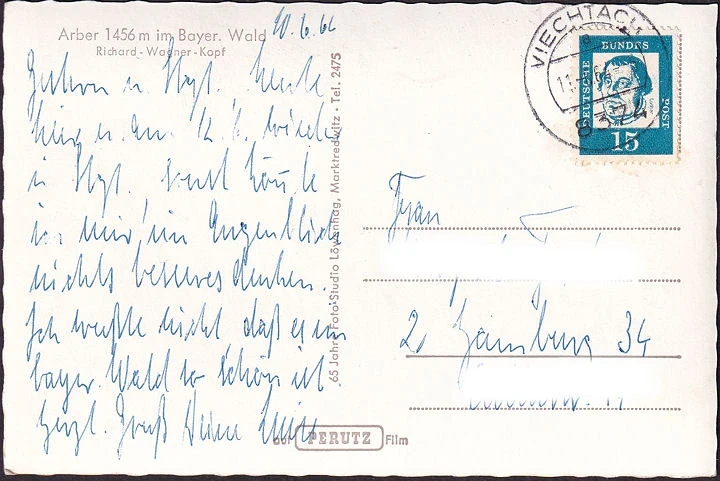 Arber 1456 m im Bayer. Wald
Richard-Wagner-Kopf
10.6.64
Gestern u. Hzgl. heute
hier u. am 12.6. wieder
in Hzgl. sonst könnte
ich mir im Augenblick
nichts besseres denken.
Ich wußte nicht, daß es im
bayer. Wald so schön ist
Herzl. Gruß Deine
65 Jahre Foto-Studio Löwenhag, Marktredwitz · Tel. 2475
auf PERUTZ Film
VIECHTACH
8374
DEUTSCHE BUNDESPOST
15
Frau
2 Hamburg 34